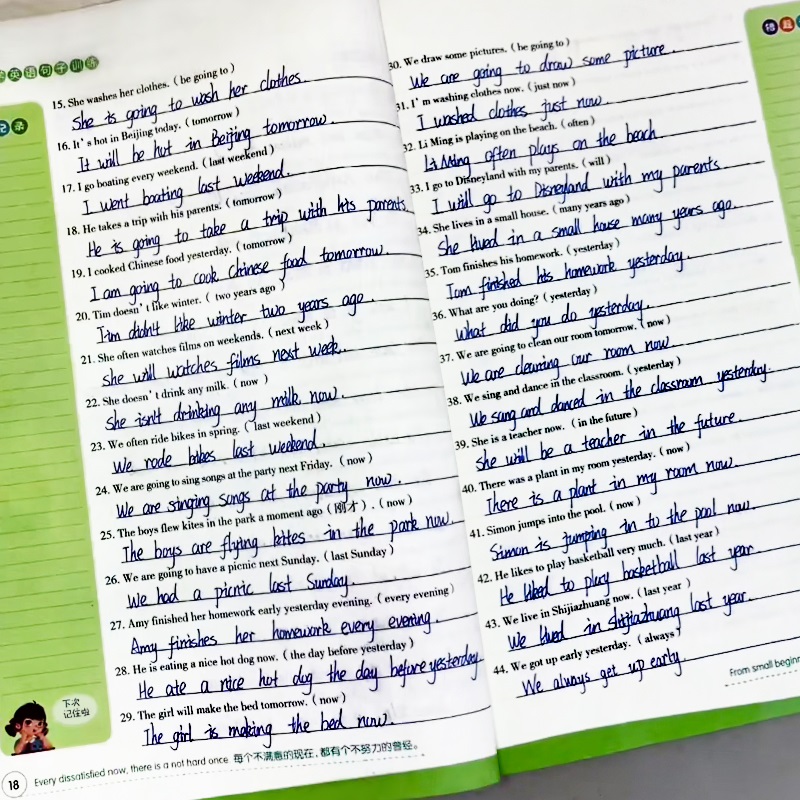 英语句子训练
15. She washes her clothes. ( be going to )
She is going to wash her clothes.
16. It's hot in Beijing today. ( tomorrow )
It will be hot in Beijing tomorrow.
17. I go boating every weekend. ( last weekend )
I went boating last weekend.
18. He takes a trip with his parents. ( tomorrow )
He is going to take a trip with his parents.
19. I cooked Chinese food yesterday. ( tomorrow )
I am going to cook Chinese food tomorrow.
20. Tim doesn't like winter. ( two years ago )
Tim didn't like winter two years ago.
21. She often watches films on weekends. ( next week )
she will watches films next week.
22. She doesn't drink any milk. ( now )
she isn't drinking any milk now.
23. We often ride bikes in spring. ( last weekend )
We rode bikes last weekend.
24. We are going to sing songs at the party next Friday. ( now )
We are singing songs at the party now.
25. The boys flew kites in the park a moment ago ( 刚才 ) . ( now )
The boys are flying kites in the park now.
26. We are going to have a picnic next Sunday. ( last Sunday )
We had a picnic last Sunday.
27. Amy finished her homework early yesterday evening. ( every evening )
Amy finishes her homework every evening.
28. He is eating a nice hot dog now. ( the day before yesterday )
He ate a nice hot dog the day before yesterday.
29. The girl will make the bed tomorrow. ( now )
The girl is making the bed now.
下次
记住啦
18
Every dissatisfied now, there is a not hard once 每个不满意的现在，都有个不努力的曾经。
30. We draw some pictures. ( be going to )
We are going to draw some picture.
31. I'm washing clothes now. ( just now )
I washed clothes just now.
32. Li Ming is playing on the beach. ( often )
Li Ming often plays on the beach.
33. I go to Disneyland with my parents. ( will )
I will go to Disneyland with my parents.
34. She lives in a small house. ( many years ago )
She lived in a small house many years ago.
35. Tom finishes his homework. ( yesterday )
Tom finished his homework yesterday.
36. What are you doing? ( yesterday )
What did you do yesterday.
37. We are going to clean our room tomorrow. ( now )
We are cleaning our room now.
38. We sing and dance in the classroom. ( yesterday )
We sang and danced in the classroom yesterday.
39. She is a teacher now. ( in the future )
she will be a teacher in the future.
40. There was a plant in my room yesterday. ( now )
There is a plant in my room now.
41. Simon jumps into the pool. ( now )
Simon is jumping in to the pool now.
42. He likes to play basketball very much. ( last year )
He liked to play basketball last year.
43. We live in Shijiazhuang now. ( last year )
We lived in Shijiazhuang last year.
44. We got up early yesterday. ( always )
We always get up early
From small beginn